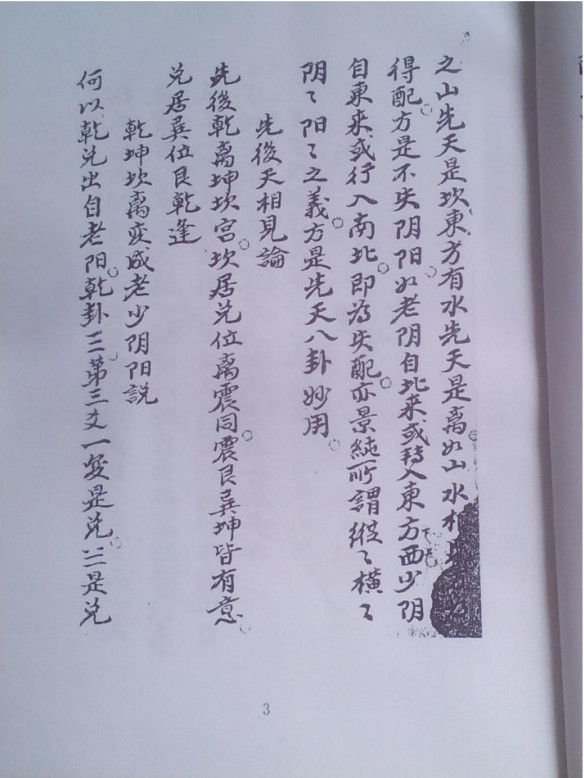 之山先天是坎東方有水先天是离如山水相
得配方是不失阴阳如老阴自北来或转入東方西少阴
自東来或行入南北即為失配亦景純所謂縱〻横〻
阴〻阳〻之義方是先天八卦妙用
先後天相見論
先後乾离坤坎宫坎居兑位离震同震艮巽坤皆有意
兑居巽位艮乾逢
乾坤坎离变成老少阴阳説
何以乾兑出自老阳乾卦☰第三爻一变是兑☱是兑
3